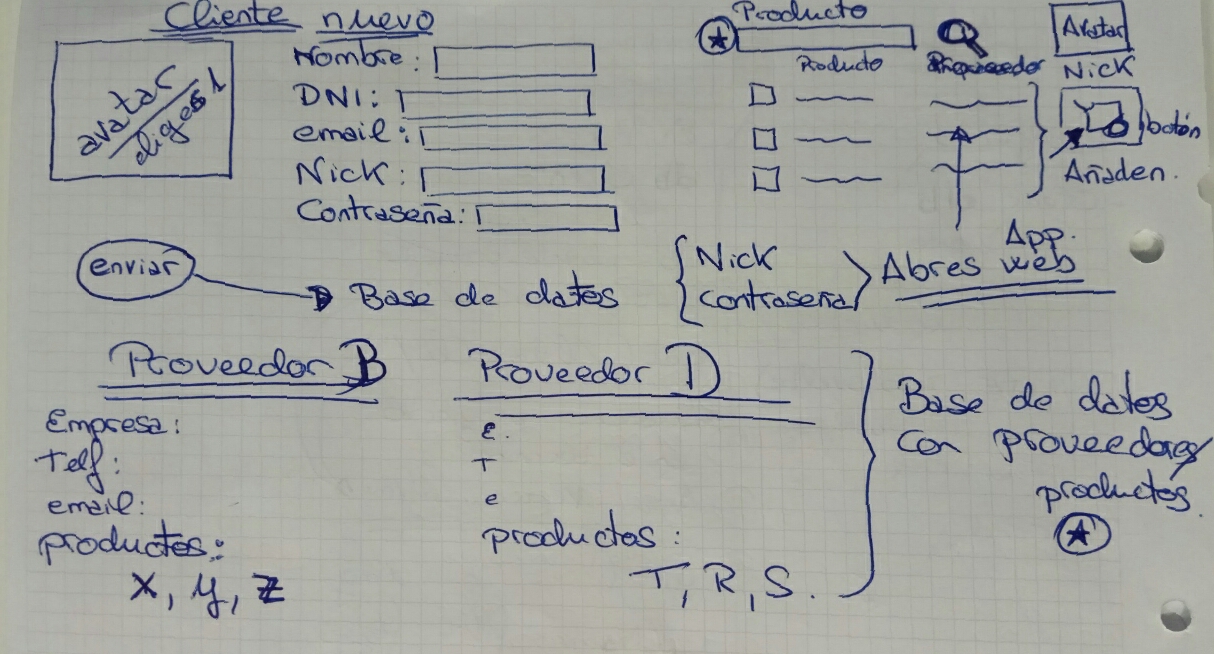 Cliente nuevo
avatar
eliges 1
Nombre:
DNI:
email:
Nick:
Contraseña:
enviar
Base de datos
Producto
Producto
Proveedor
Avatar
Nick
botón
Añaden.
Nick
contraseña
App.
Abres web
Proveedor B
Empresa:
Telf:
email:
productos:
X, y, z
Proveedor D
E.
T
e
productos:
T, R, S.
Base de datos
con proveedores/
productos.